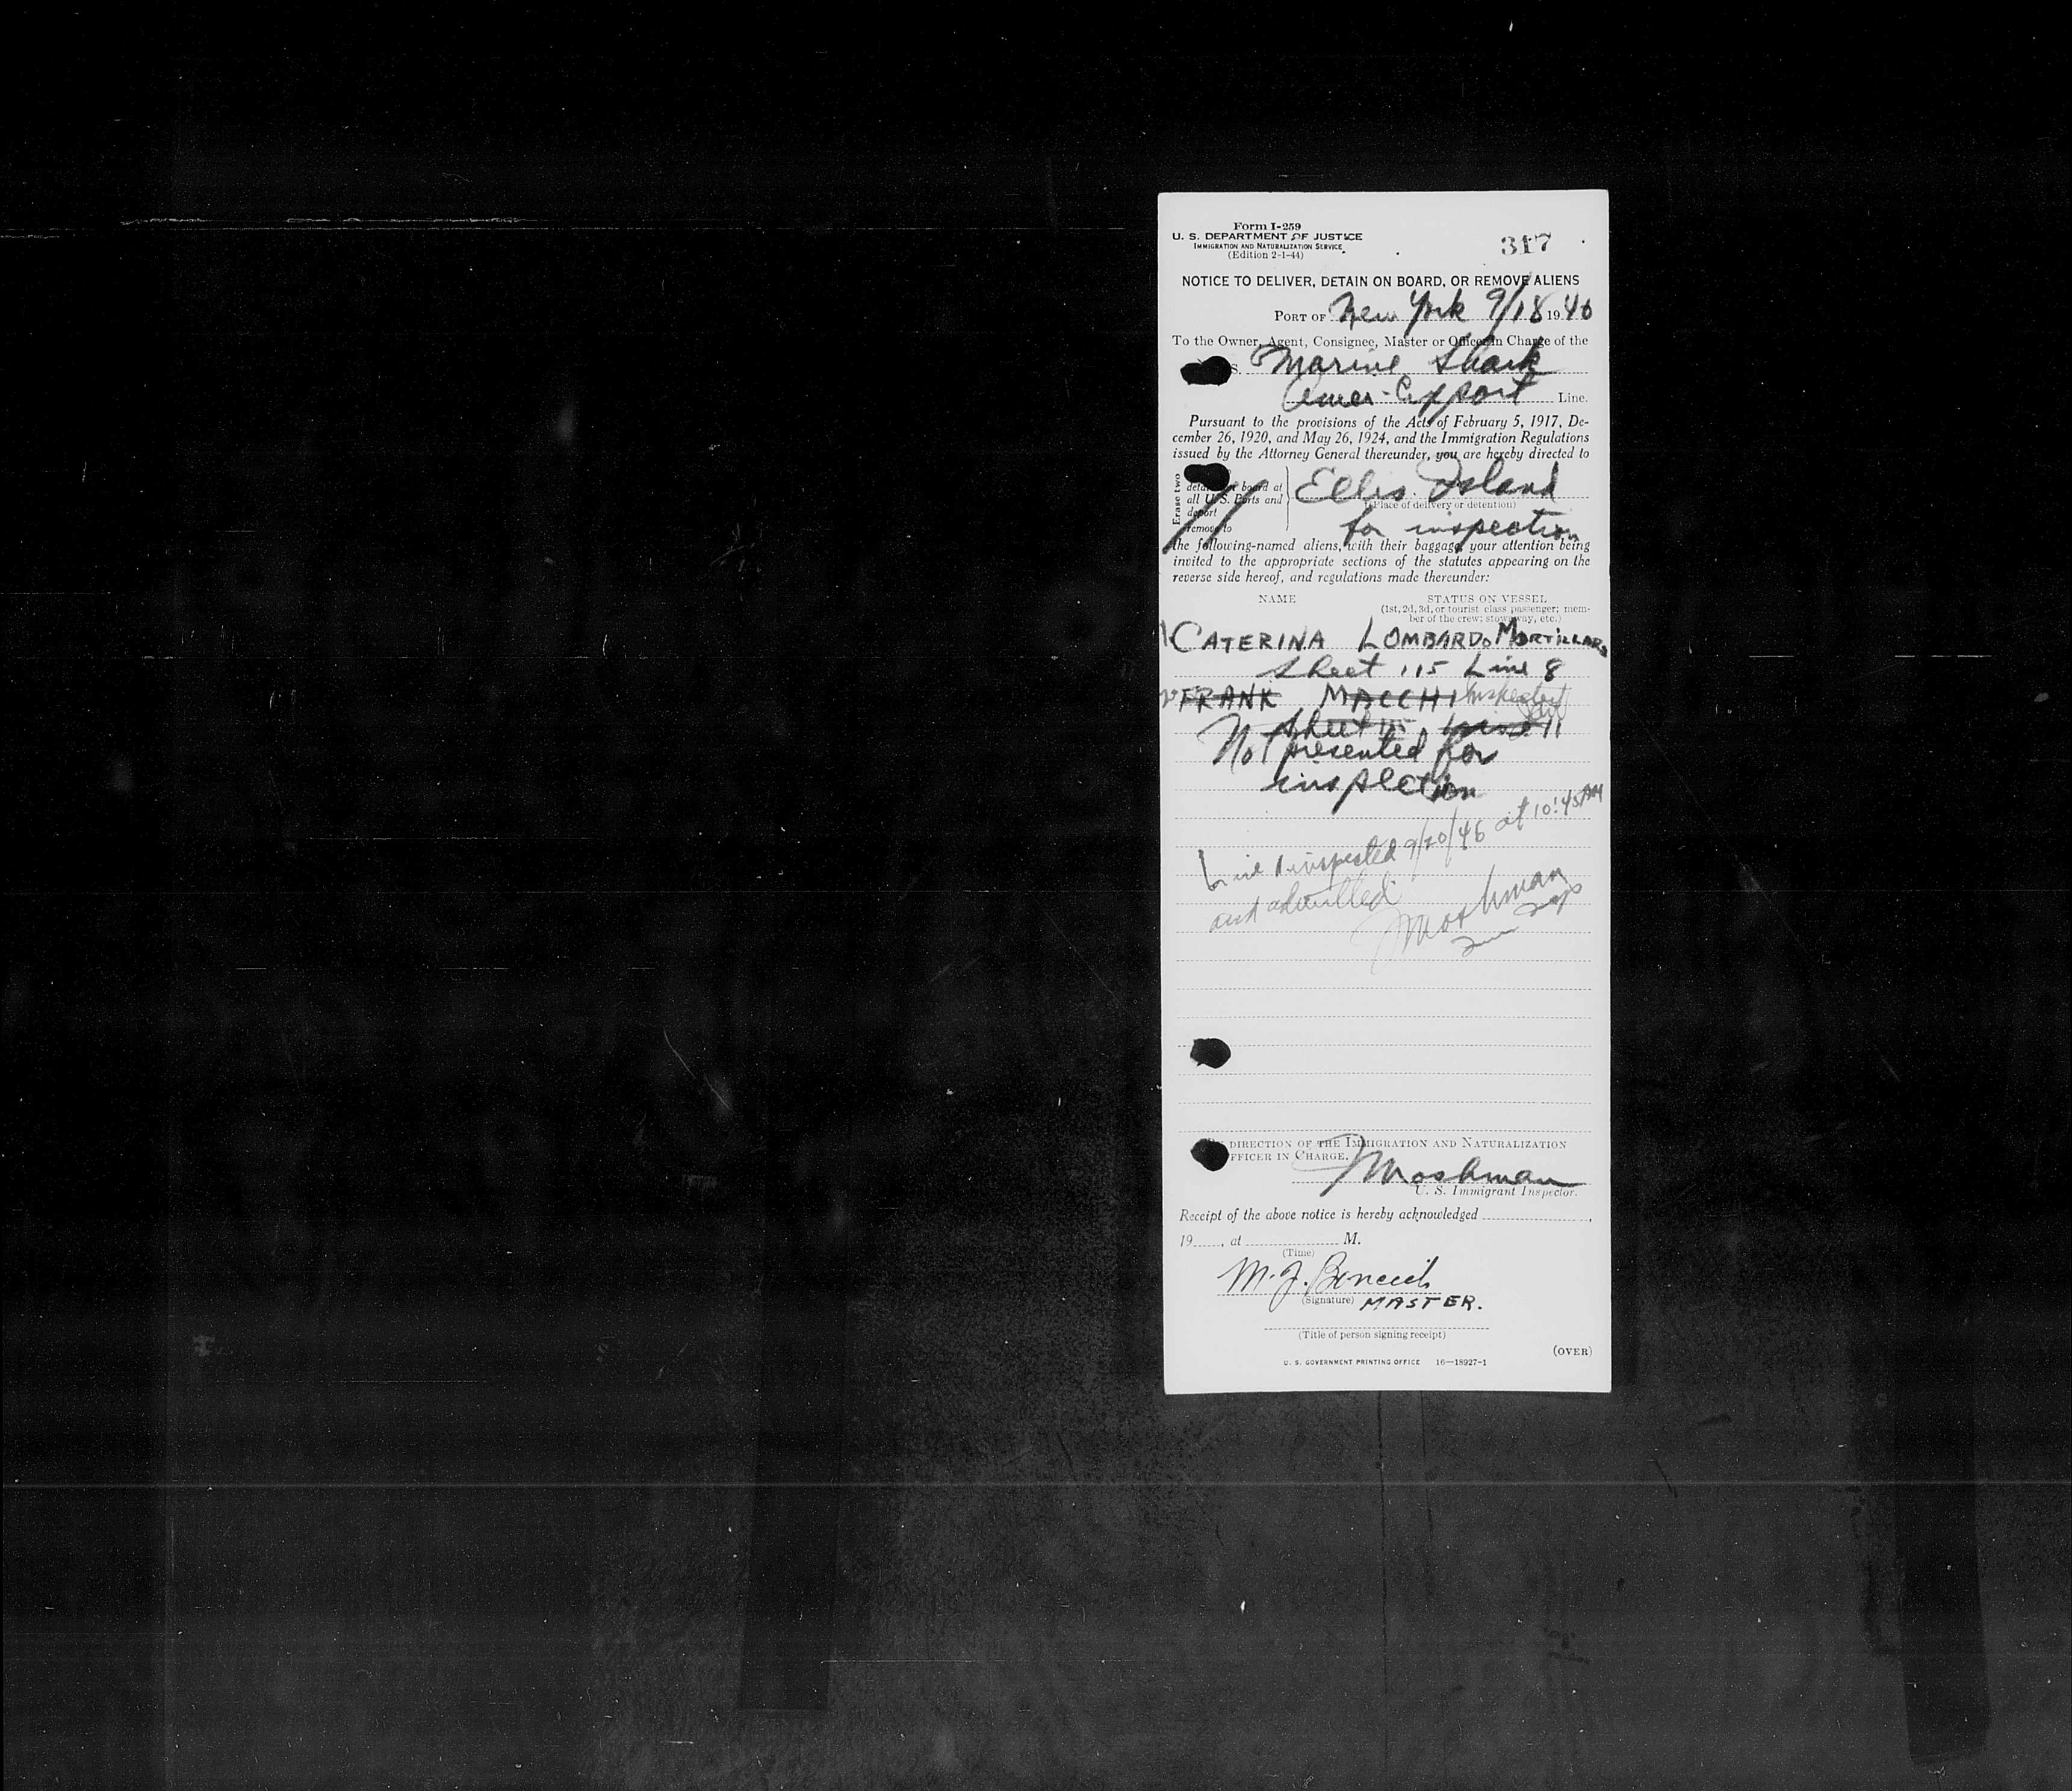 Form I-259
U. S. DEPARTMENT OF JUSTICE
IMMIGRATION AND NATURALIZATION SERVICE
(Edition 2-1-44)
317
NOTICE TO DELIVER, DETAIN ON BOARD, OR REMOVE ALIENS
PORT OF New York 9/18 1946
To the Owner, Agent, Consignee, Master or Officer in Charge of the
S. Marine Shark
Amer-Export Line.
Pursuant to the provisions of the Acts of February 5, 1917, De-
cember 26, 1920, and May 26, 1924, and the Immigration Regulations
issued by the Attorney General thereunder, you are hereby directed to
Erase two
board at
all U. S. Ports and
deport
remove to
Ellis Island
(Place of delivery or detention)
for inspection
the following-named aliens, with their baggage, your attention being
invited to the appropriate sections of the statutes appearing on the
reverse side hereof, and regulations made thereunder:
NAME STATUS ON VESSEL
(1st, 2d, 3d, or tourist class passenger; mem-
ber of the crew; stowaway, etc.)
1 CATERINA LOMBARDO MORTILLARO
Sheet 115 Line 8
2 FRANK MACCHI Inspected
Sheet 115 Line 11
Not presented for
inspection
Line 1 inspected 9/20/46 at 10:45 AM
and admitted
Moshman
Insp
BY DIRECTION OF THE IMMIGRATION AND NATURALIZATION
OFFICER IN CHARGE.
Moshman
U. S. Immigrant Inspector.
Receipt of the above notice is hereby acknowledged
19 , at M.
(Time)
M. J.
(Signature) MASTER.
(Title of person signing receipt)
(OVER)
U. S. GOVERNMENT PRINTING OFFICE 16—18927-1